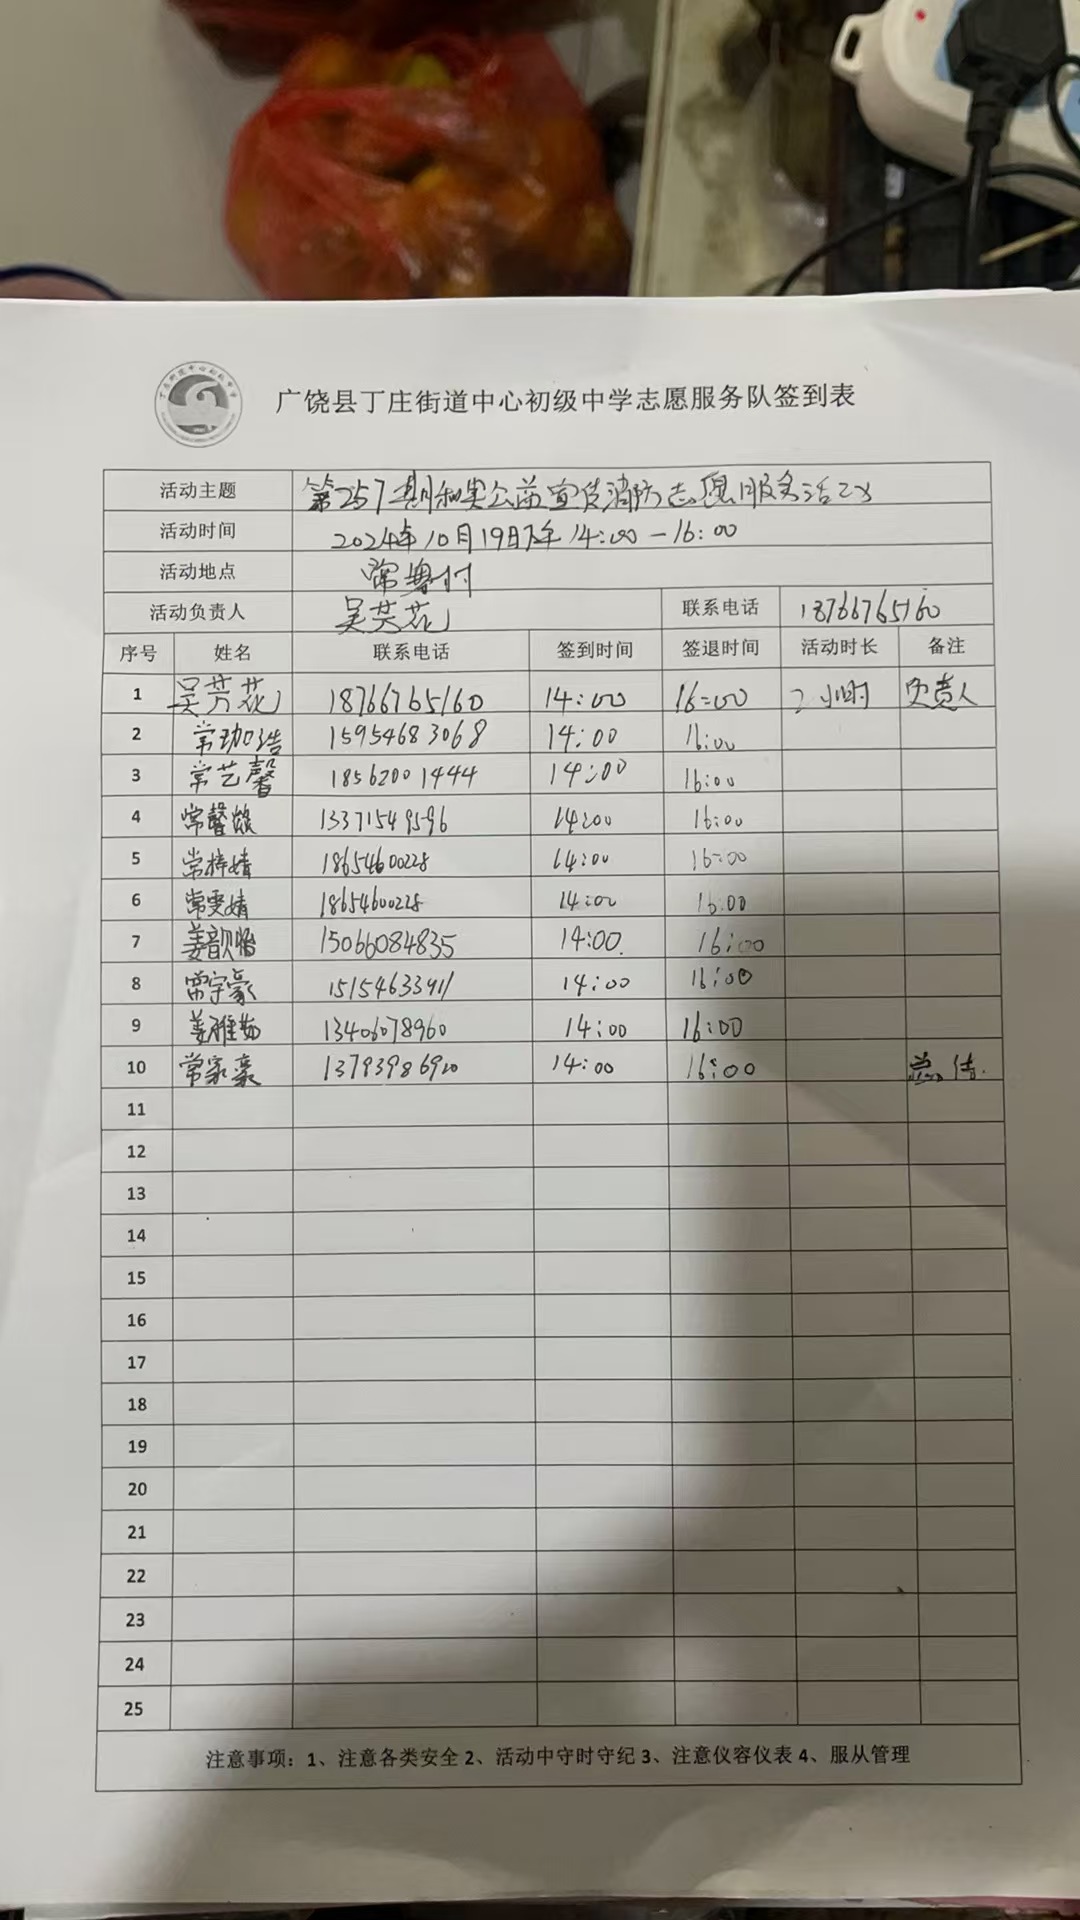 广饶县丁庄街道中心初级中学志愿服务队签到表
活动主题 第257期和美公益宣传消防志愿服务活动
活动时间 2024年10月19日下午14:00-16:00
活动地点 常粤村
活动负责人 吴芳花 联系电话 18766765160
序号 姓名 联系电话 签到时间 签退时间 活动时长 备注
1 吴芳花 18766765160 14:00 16:00 2小时 负责人
2 常珈浩 15954683068 14:00 16:00
3 常艺馨 18562001444 14:00 16:00
4 常馨 13371549596 14:00 16:00
5 常梓婧 18654600228 14:00 16:00
6 常雯婧 18654600228 14:00 16:00
7 姜歆 15066084835 14:00 16:00
8 常宇豪 15154633911 14:00 16:00
9 姜雅茹 13406078960 14:00 16:00
10 常家豪 13793986920 14:00 16:00 总结
11
12
13
14
15
16
17
18
19
20
21
22
23
24
25
注意事项：1、注意各类安全 2、活动中守时守纪 3、注意仪容仪表 4、服从管理